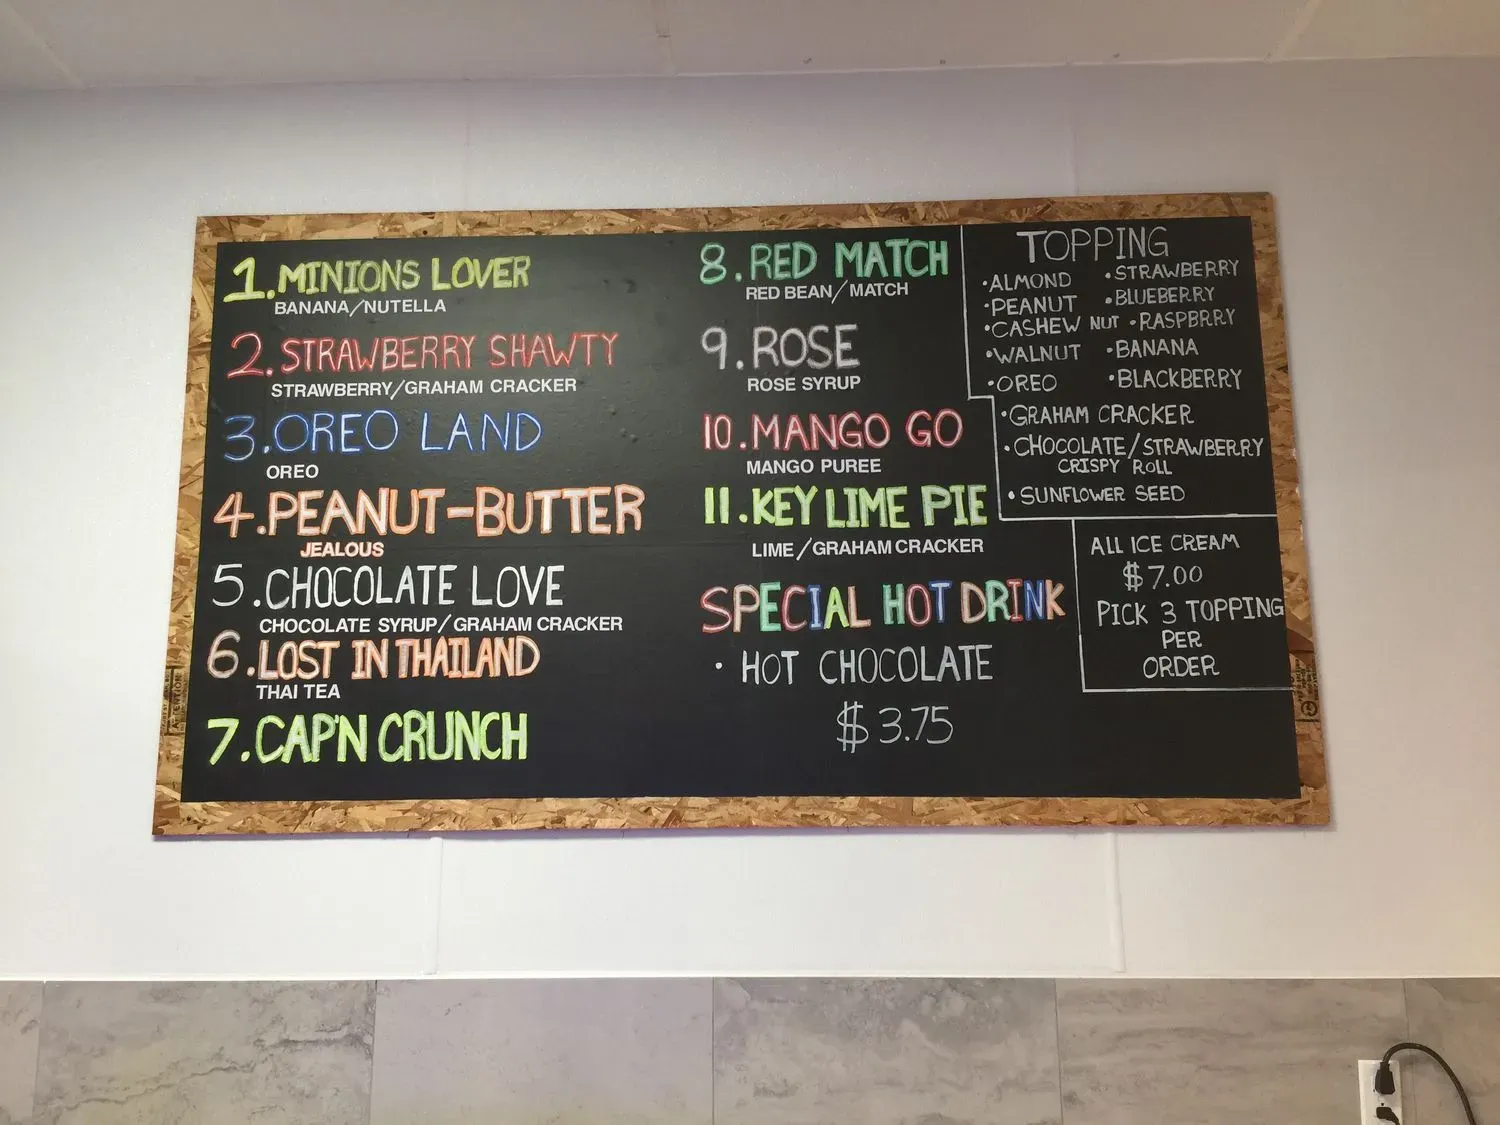 1. MINIONS LOVER
BANANA/NUTELLA
2. STRAWBERRY SHAWTY
STRAWBERRY/GRAHAM CRACKER
3. OREO LAND
OREO
4. PEANUT-BUTTER
JEALOUS
5. CHOCOLATE LOVE
CHOCOLATE SYRUP/GRAHAM CRACKER
6. LOST IN THAILAND
THAI TEA
7. CAP'N CRUNCH
8. RED MATCH
RED BEAN/MATCH
9. ROSE
ROSE SYRUP
10. MANGO GO
MANGO PUREE
11. KEY LIME PIE
LIME/GRAHAM CRACKER
SPECIAL HOT DRINK
· HOT CHOCOLATE
$3.75
TOPPING
·ALMOND
·PEANUT
·CASHEW NUT
·WALNUT
·OREO
·STRAWBERRY
·BLUEBERRY
·RASPBRRY
·BANANA
·BLACKBERRY
·GRAHAM CRACKER
·CHOCOLATE/STRAWBERRY
CRISPY ROLL
·SUNFLOWER SEED
ALL ICE CREAM
$7.00
PICK 3 TOPPING
PER
ORDER